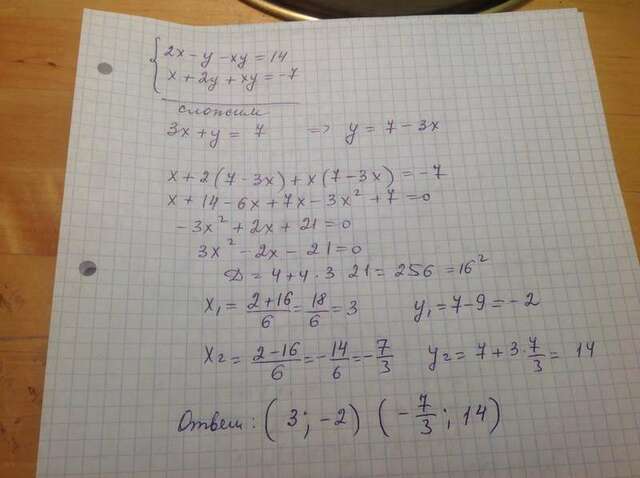 2x - y - xy = 14
x + 2y + xy = -7
сложим
3x + y = 7 => y = 7 - 3x
x + 2(7 - 3x) + x(7 - 3x) = -7
x + 14 - 6x + 7x - 3x² + 7 = 0
-3x² + 2x + 21 = 0
3x² - 2x - 21 = 0
D = 4 + 4 · 3 21 = 256 = 16²
x₁ = (2+16)/6 = 18/6 = 3 y₁ = 7 - 9 = -2
x₂ = (2-16)/6 = -14/6 = -7/3 y₂ = 7 + 3·7/3 = 14
Ответ: (3; -2) (-7/3; 14)